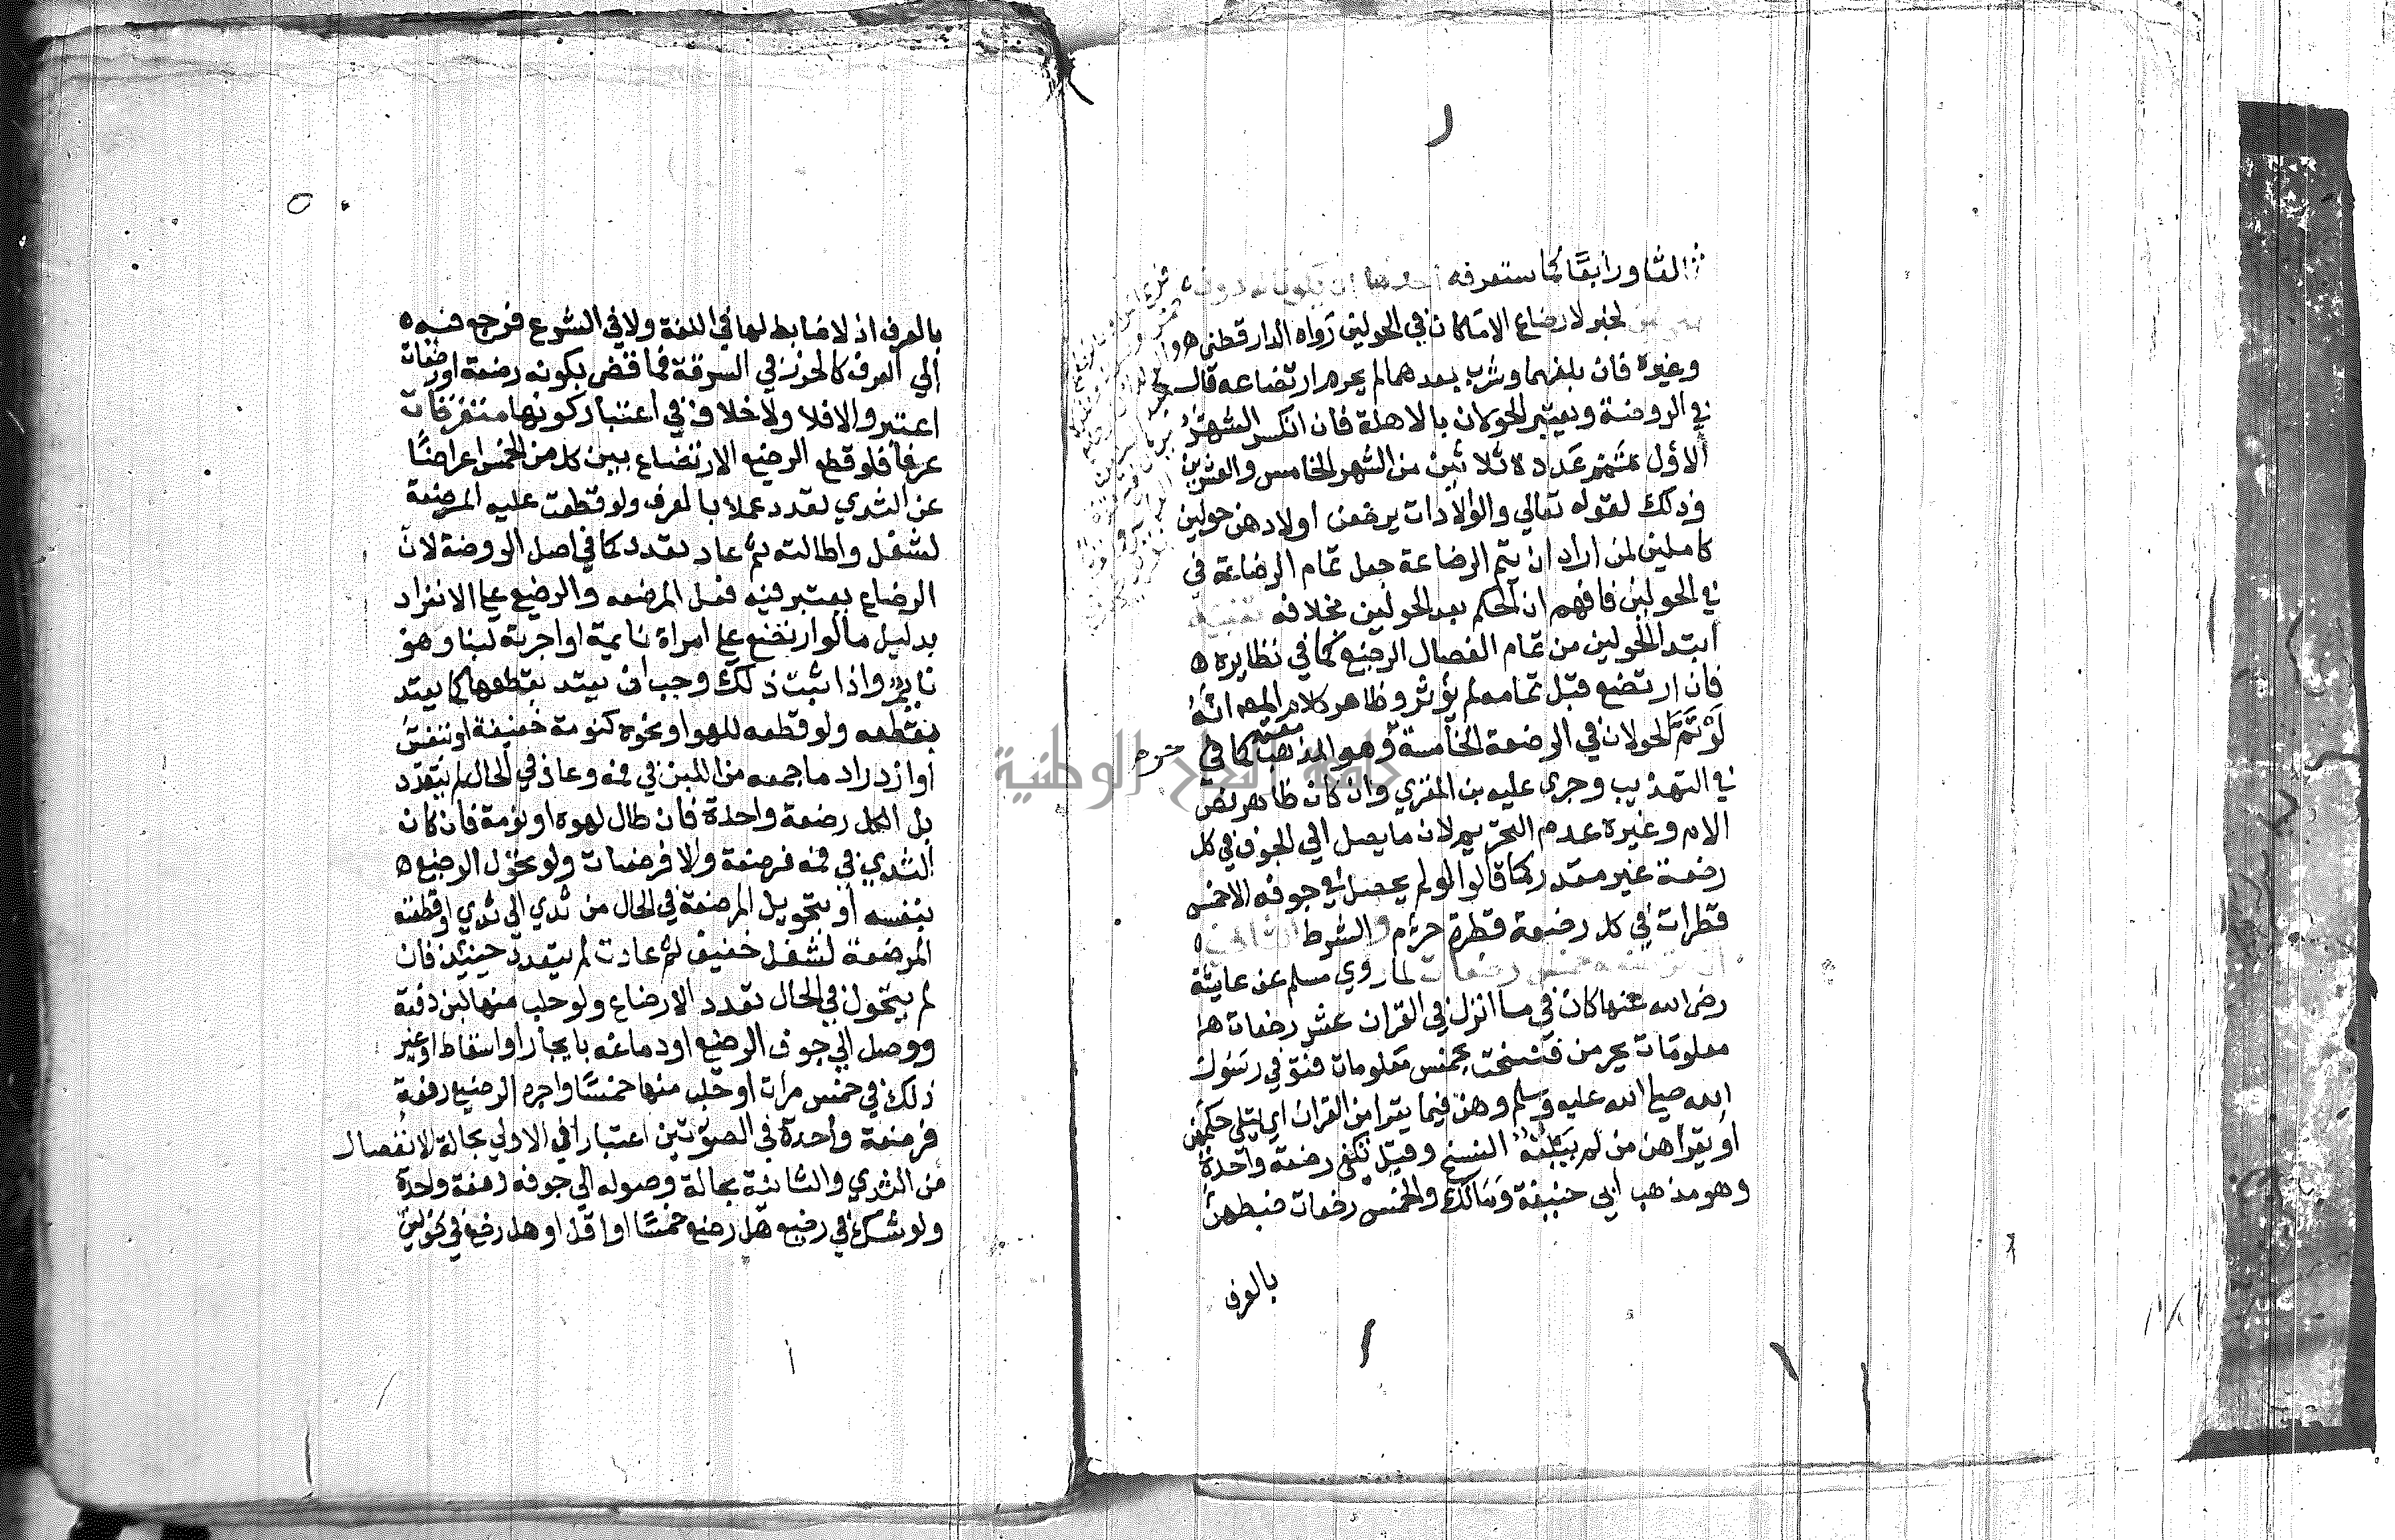 ثالثا ورابعا كما ستعرفه احدها ان يكون له دون
لخبر لا رضاع الا ما كان في الحولين رواه الدارقطني
وغيره فان بلغهما وشرب بعدهما لم يحرم ارتضاعه قال
في الروضة ويعتبر الحولان بالاهلة فان انكسر الشهر
الاول تمم عدده ثلاثين من الشهر الخامس والعشرين
وذلك لقوله تعالي والوالدات يرضعن اولادهن حولين
كاملين لمن اراد ان يتم الرضاعة جعل تمام الرضاعة في
في الحولين فافهم ان الحكم بعد الحولين بخلافه تنبيه
ابتدا الحولين من تمام انفصال الرضيع كما في نظايره ه
فان ارتضع قبل تمامه لم يؤثر وظاهر كلام المصـ انه
لو تم الحولان في الرضعة الخامسة وهو المذهب كما في
في التهذيب وجري عليه بن المقري وان كان ظاهر نص
الام وغيره عدم التحريم لان ما يصل الي الجوف في كل
رضعة غير مقدر كما قالوا لو لم يحصل في جوفه الا خمس
قطرات في كل رضعة قطرة حرم والشرط الثاني
خمس رضعات لما روي مسلم عن عايشة
رضي الله عنها كان في ما انزل في القران عشر رضعات
معلومات يحرمن فنسخت بخمس معلومات فتوفي رسول
الله صلي الله عليه وسلم وهن فيما يقرا من القران اي يتلي حكمهن
او يقراهن من لم يبلغه النسخ وقيل تكفي رضعة واحدة
وهو مذهب ابي حنيفة ومالك والخمس رضعات ضبطهن
بالعرف
بالعرف اذ لا ضابط لها في اللغة ولا في الشرع فرجع فيه ه
الي العرف كالحرز في السرقة فما قضي بكونه رضعة او رضعات
اعتبر والا فلا ولا خلاف في اعتبار كونها متفرقات
عرفا فلو قطع الرضيع الارتضاع بين كل من الخمس اعراضا
عن الثدي تعدد عملا بالعرف ولو قطعت عليه المرضعة
لشغل واطالته ثم عاد تعدد كما في اصل الروضة لان
الرضاع يعتبر فيه فعل المرضعه والرضيع علي الانفراد
بدليل ما لو ارتضع علي امراة نايمة او اجرته لبنا وهو
نايم واذا ثبت ذلك وجب ان يعتد بقطعها كما يعتد
بقطعه ولو قطعه للهو او نحوه كنومة خفيفة او تنفس
او ازدراد ما جمعه من اللبن في فمه وعاد في الحال لم يتعدد
بل الكل رضعة واحدة فان طال لهوه او نومة فان كان
الثدي في فمه فرضعة والا فرضعات ولو تحول الرضيع ه
بنفسه او بتحويل المرضعة في الحال من ثدي الي ثدي او قطعته
المرضعة لشغل خفيف ثم عادت لم يتعدد حينيذ فان
لم يتحول في الحال تعدد الارضاع ولو حلب منها لبن دفعة
ووصل الي جوف الرضيع او دماغه بايجار او اسقاط او غير
ذلك في خمس مرات او حلب منها خمسا واجره الرضيع دفعة
فرضعة واحدة في الصورتين اعتبارا في الاولي بحالة الانفصال
من الثدي والثانية بحالة وصوله الي جوفه دفعة واحدة
ولو شك في رضيع هل رضع خمسا او اقل او هل رضع في حولين
جامعة النجاح الوطنية